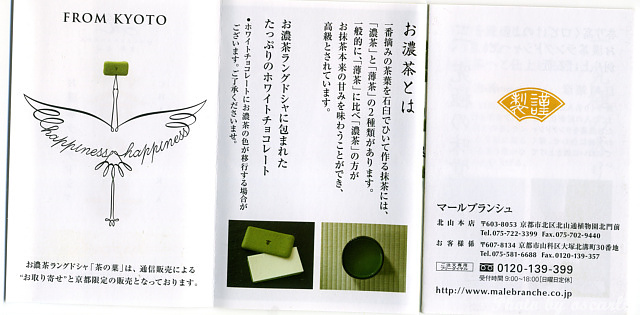 FROM KYOTO
happiness happiness
お濃茶ラングドシャ「茶の菓」は、通信販売による
“お取り寄せ”と京都限定の販売となっております。
お濃茶とは
一番摘みの茶葉を石臼でひいて作る抹茶には、
「濃茶」と「薄茶」の2種類があります。
一般的に、「薄茶」に比べ「濃茶」の方が
お抹茶本来の甘みを味わうことができ、
高級とされています。
お濃茶ラングドシャに包まれた
たっぷりのホワイトチョコレート
●ホワイトチョコレートにお濃茶の色が移行する場合が
ございます。ご了承くださいませ。
謹製
マールブランシュ
北山本店 〒603-8053 京都市北区北山通植物園北門前
Tel.075-722-3399 Fax.075-702-9440
お客様係 〒607-8134 京都市山科区大塚北溝町30番地
Tel.075-581-6688 Fax.0120-139-357
0120-139-399
受付時間 9:00~18:00[日曜日定休]
http://www.malebranche.co.jp